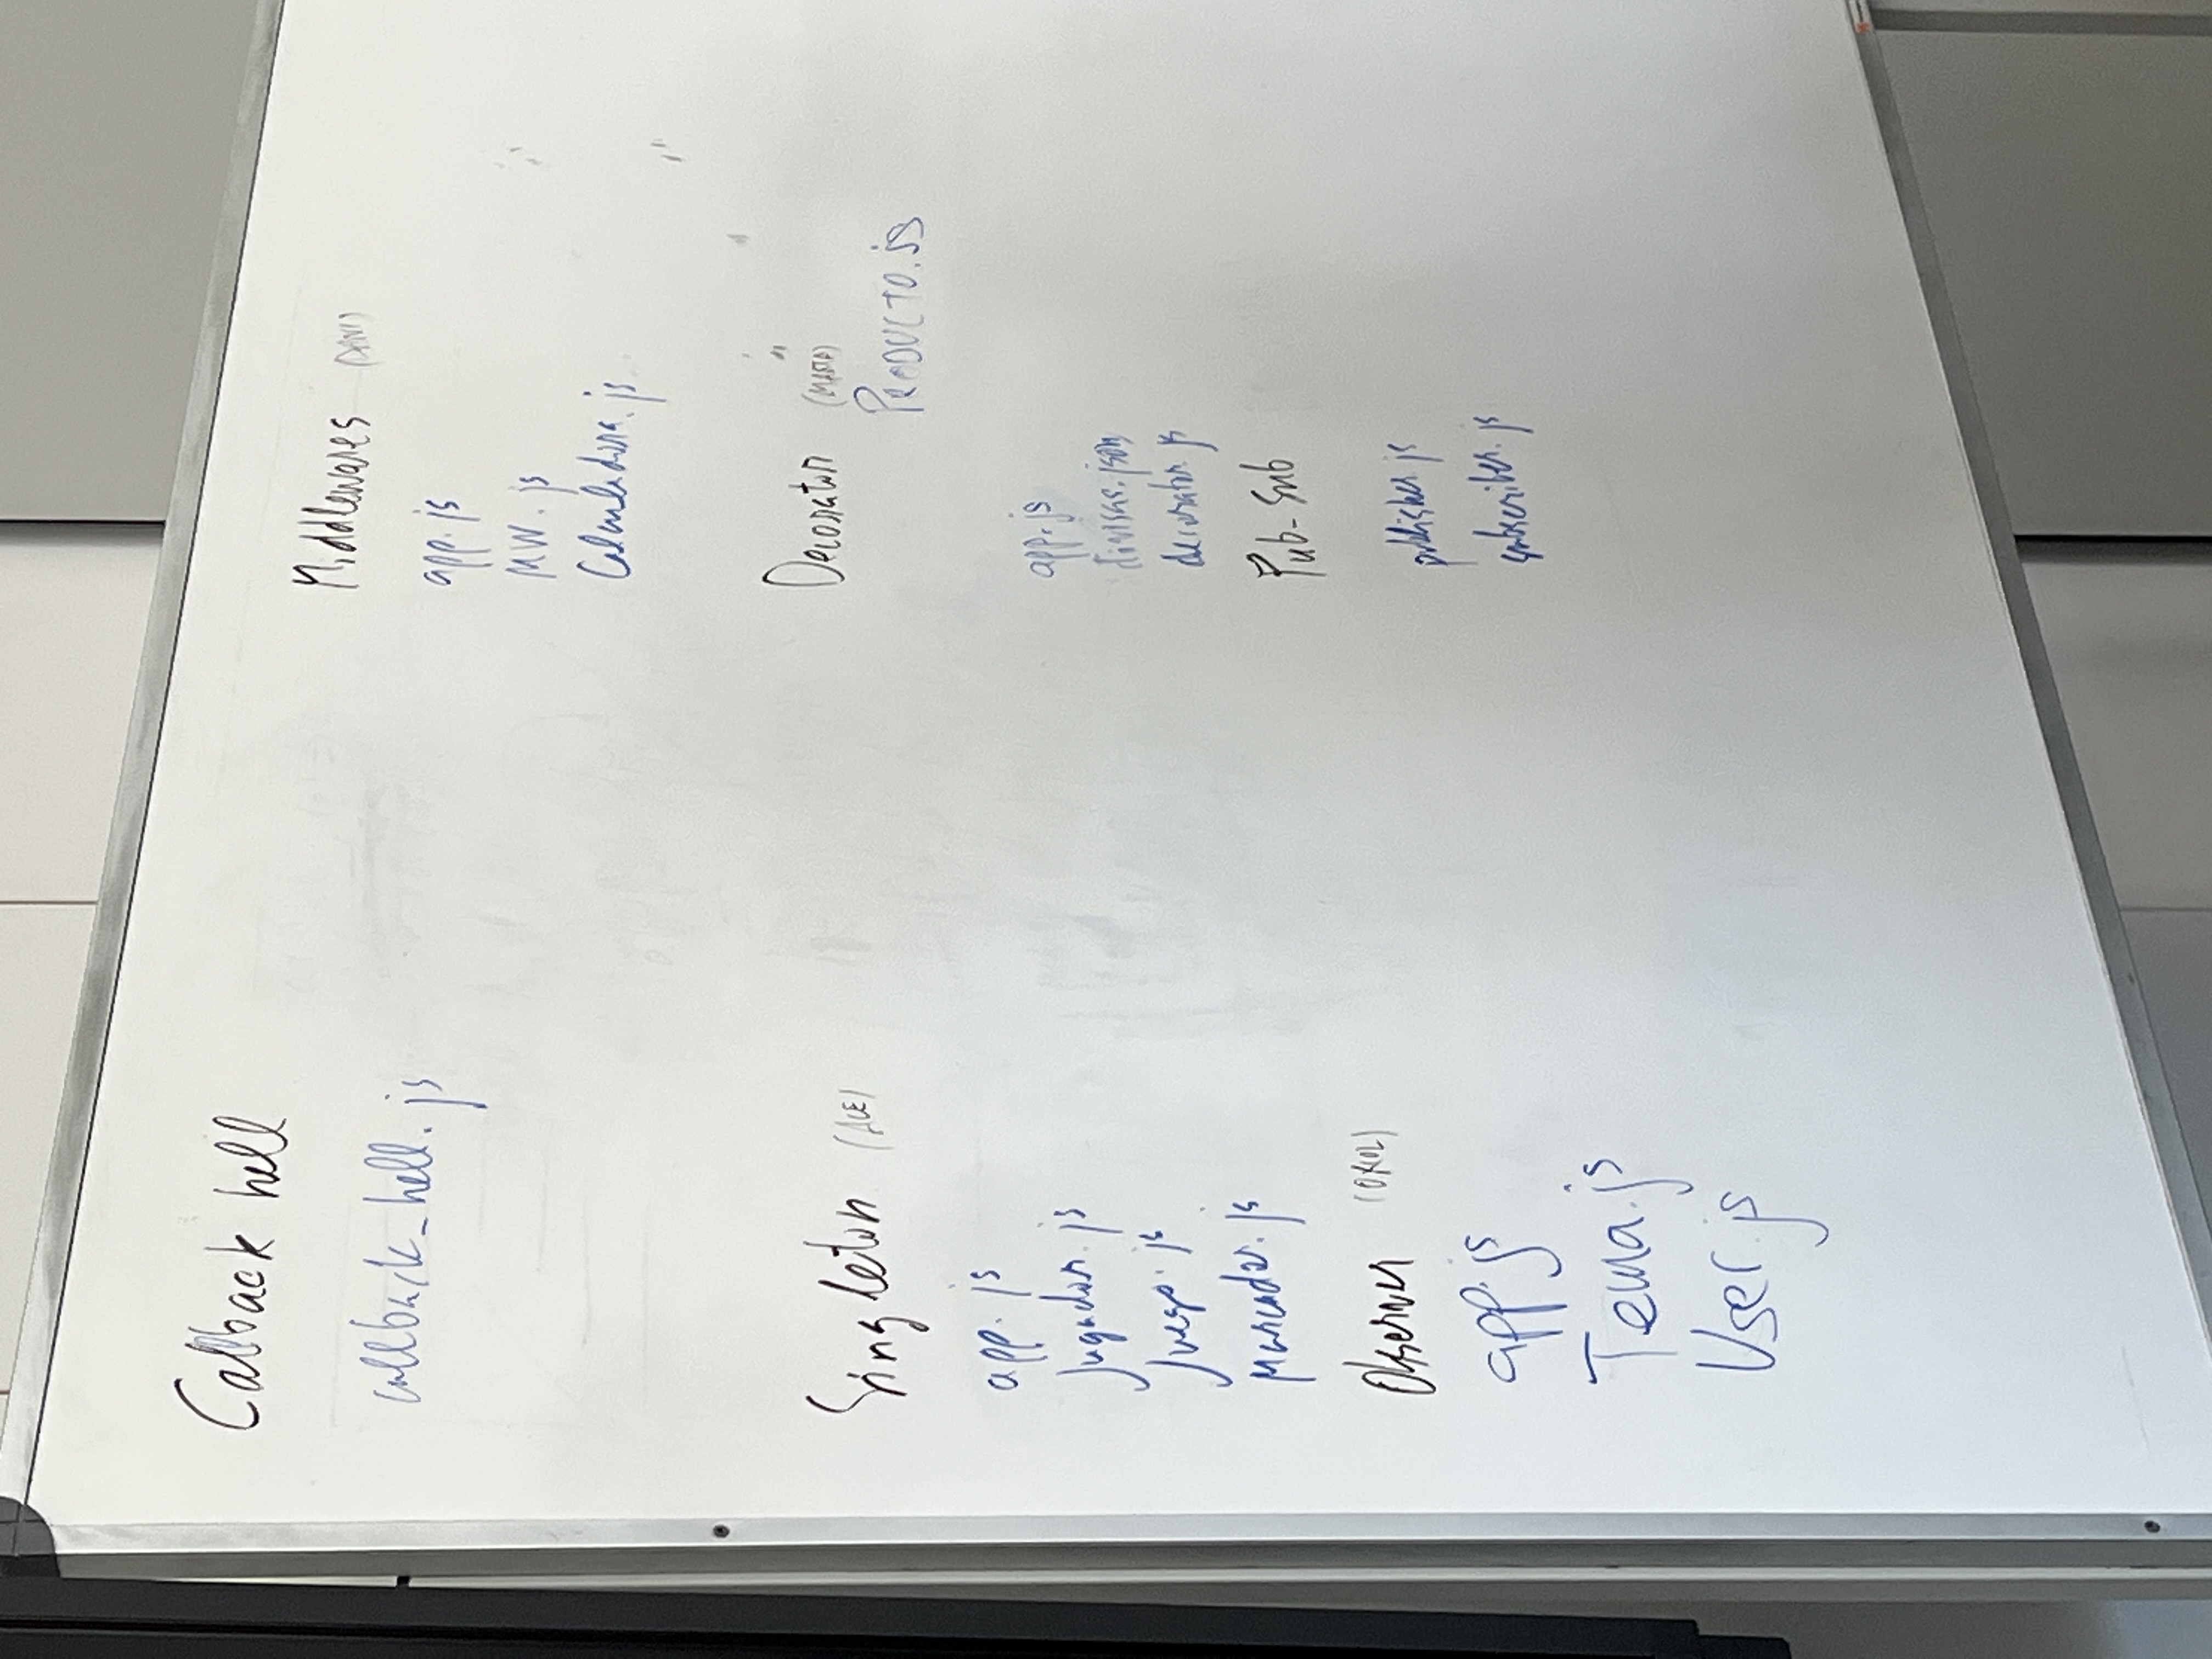 Callback hell
callback_hell.js
Singleton (ALE)
app.js
Jugador.js
Juego.js
Marcador.js
Observer (ORIOL)
app.js
Tema.js
User.js
Middlewares (DANI)
app.js
MW.js
Calculadora.js
Decorator (MARTA)
PRODUCTO.js
app.js
divisas.json
decorator.js
Pub-Sub
publisher.js
subscriber.js